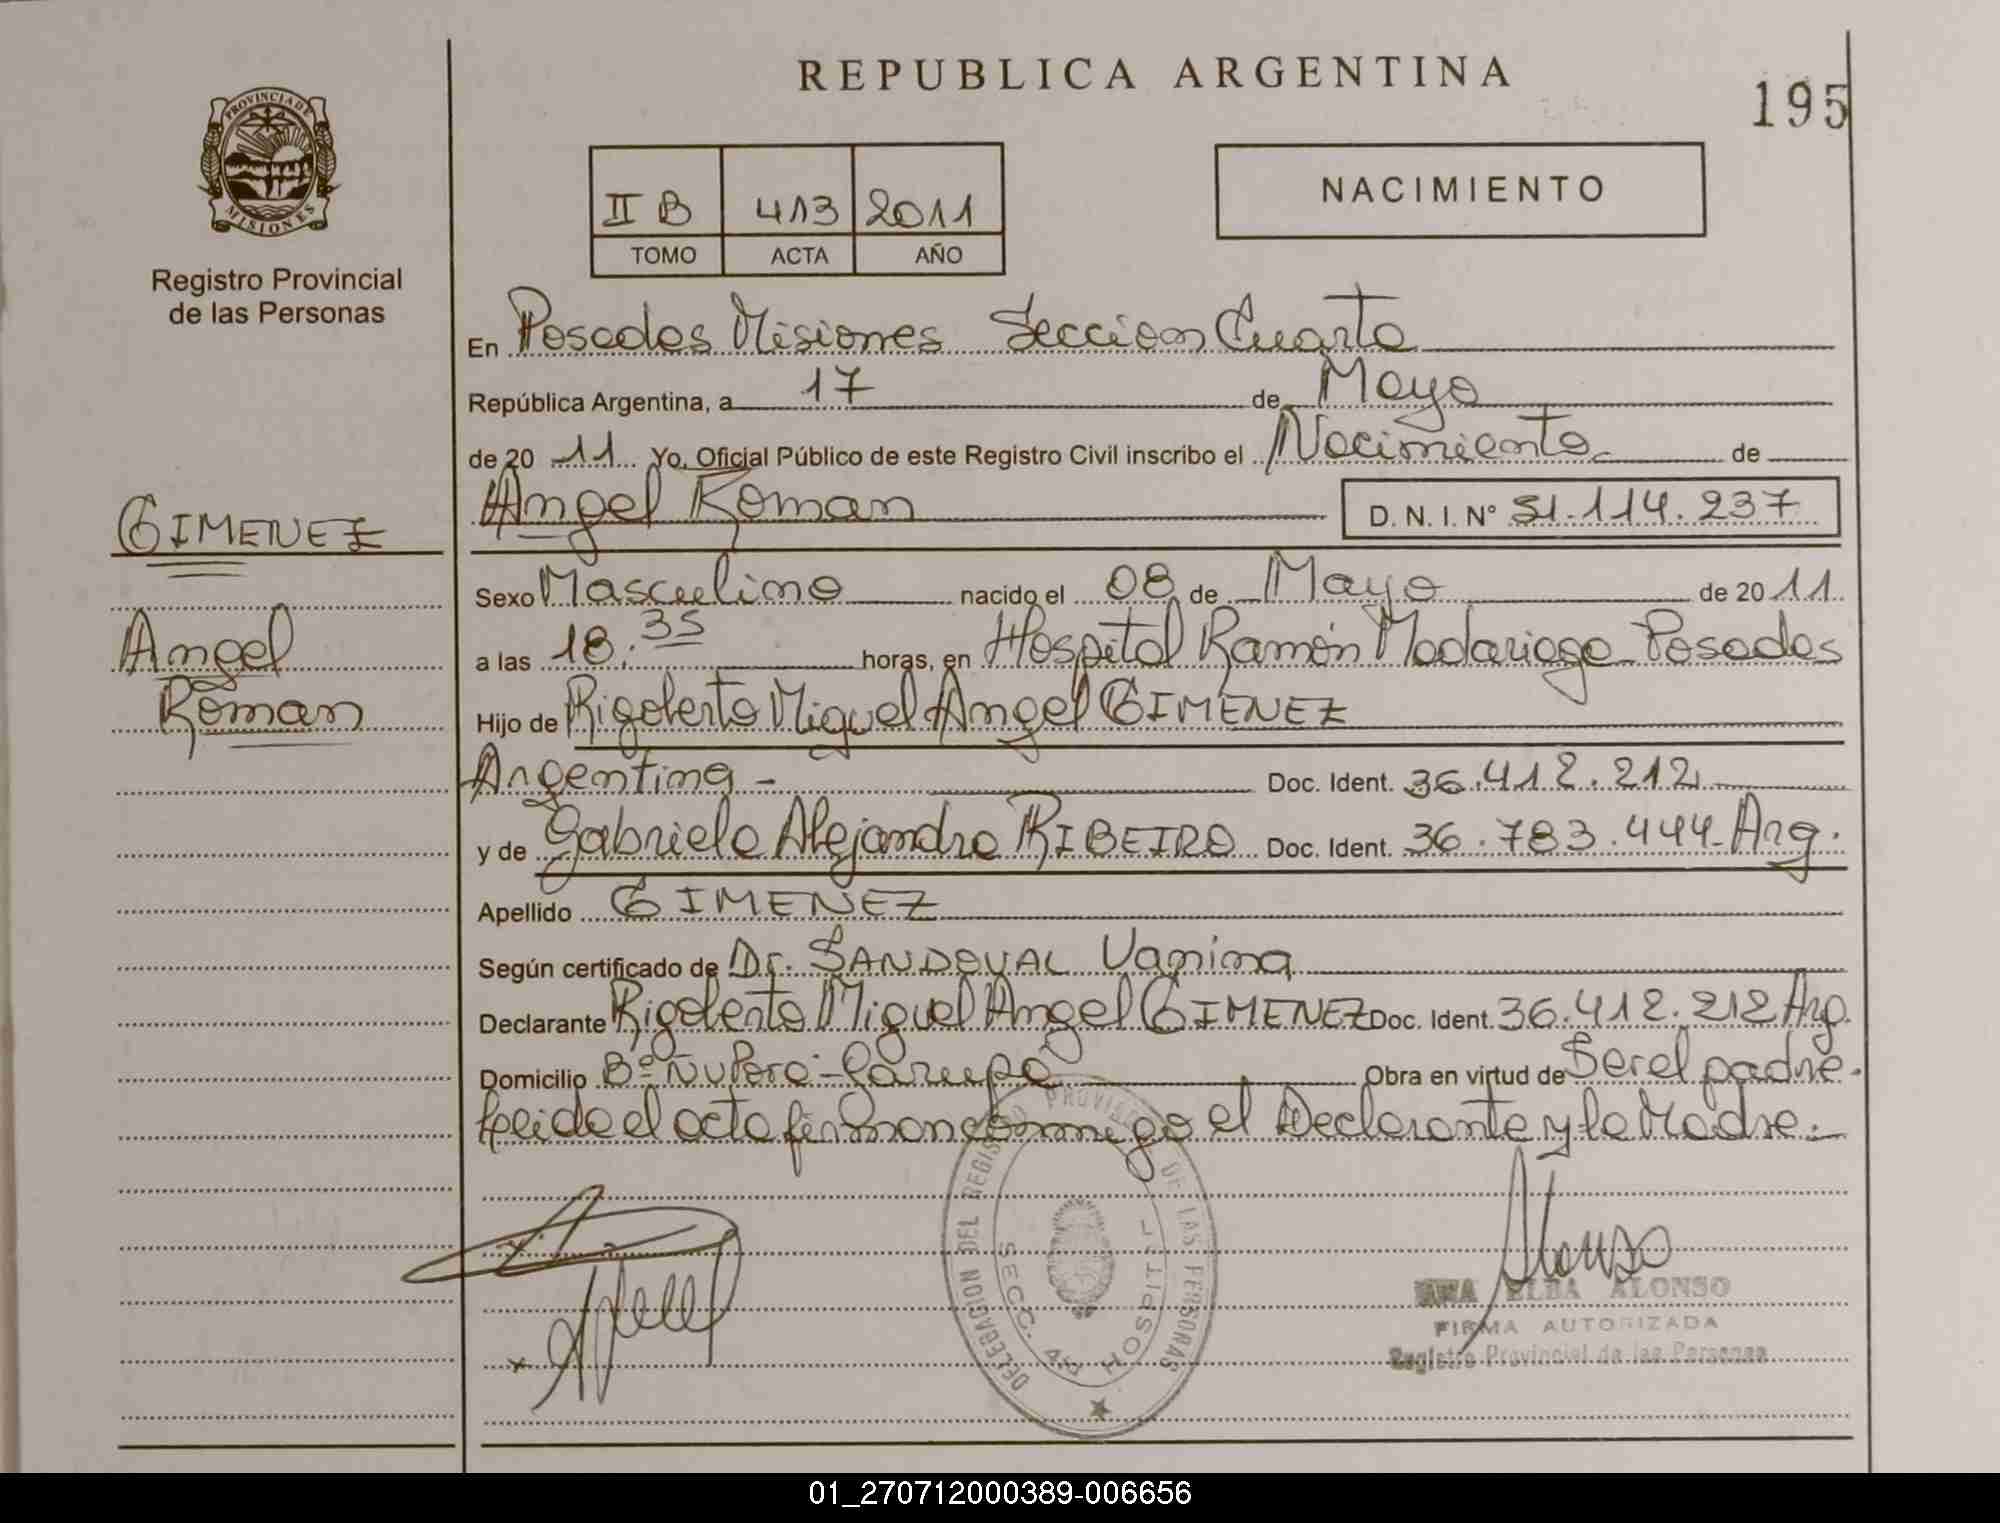 REPUBLICA ARGENTINA
195
PROVINCIA DE
MISIONES
Registro Provincial
de las Personas
II B 413 2011
TOMO ACTA AÑO
NACIMIENTO
En Posadas Misiones Sección Cuarta
República Argentina, a 17 de Mayo
de 20 11 Yo, Oficial Público de este Registro Civil inscribo el Nacimiento de
Angel Roman D. N. I. N° 51.114.237
GIMENEZ
Angel
Roman
Sexo Masculino nacido el 08 de Mayo de 20 11
a las 18.35 horas, en Hospital Ramón Madariaga Posadas
Hijo de Rigoberto Miguel Angel GIMENEZ
Argentina - Doc. Ident. 36.412.212
y de Gabriela Alejandra RIBEIRO Doc. Ident. 36.783.444 - Arg.
Apellido GIMENEZ
Según certificado de Dr. SANDOVAL Vanina
Declarante Rigoberto Miguel Angel GIMENEZ Doc. Ident. 36.412.212 Arg.
Domicilio B° Ñu Porá - Garupá Obra en virtud de Ser el padre.
Leida el acta firman conmigo el Declarante y la Madre.-
DELEGACION DEL REGISTRO PROVINCIAL DE LAS PERSONAS
SECC. 4ta HOSPITAL
Alonso
ANA ELBA ALONSO
FIRMA AUTORIZADA
Registro Provincial de las Personas
01_270712000389-006656